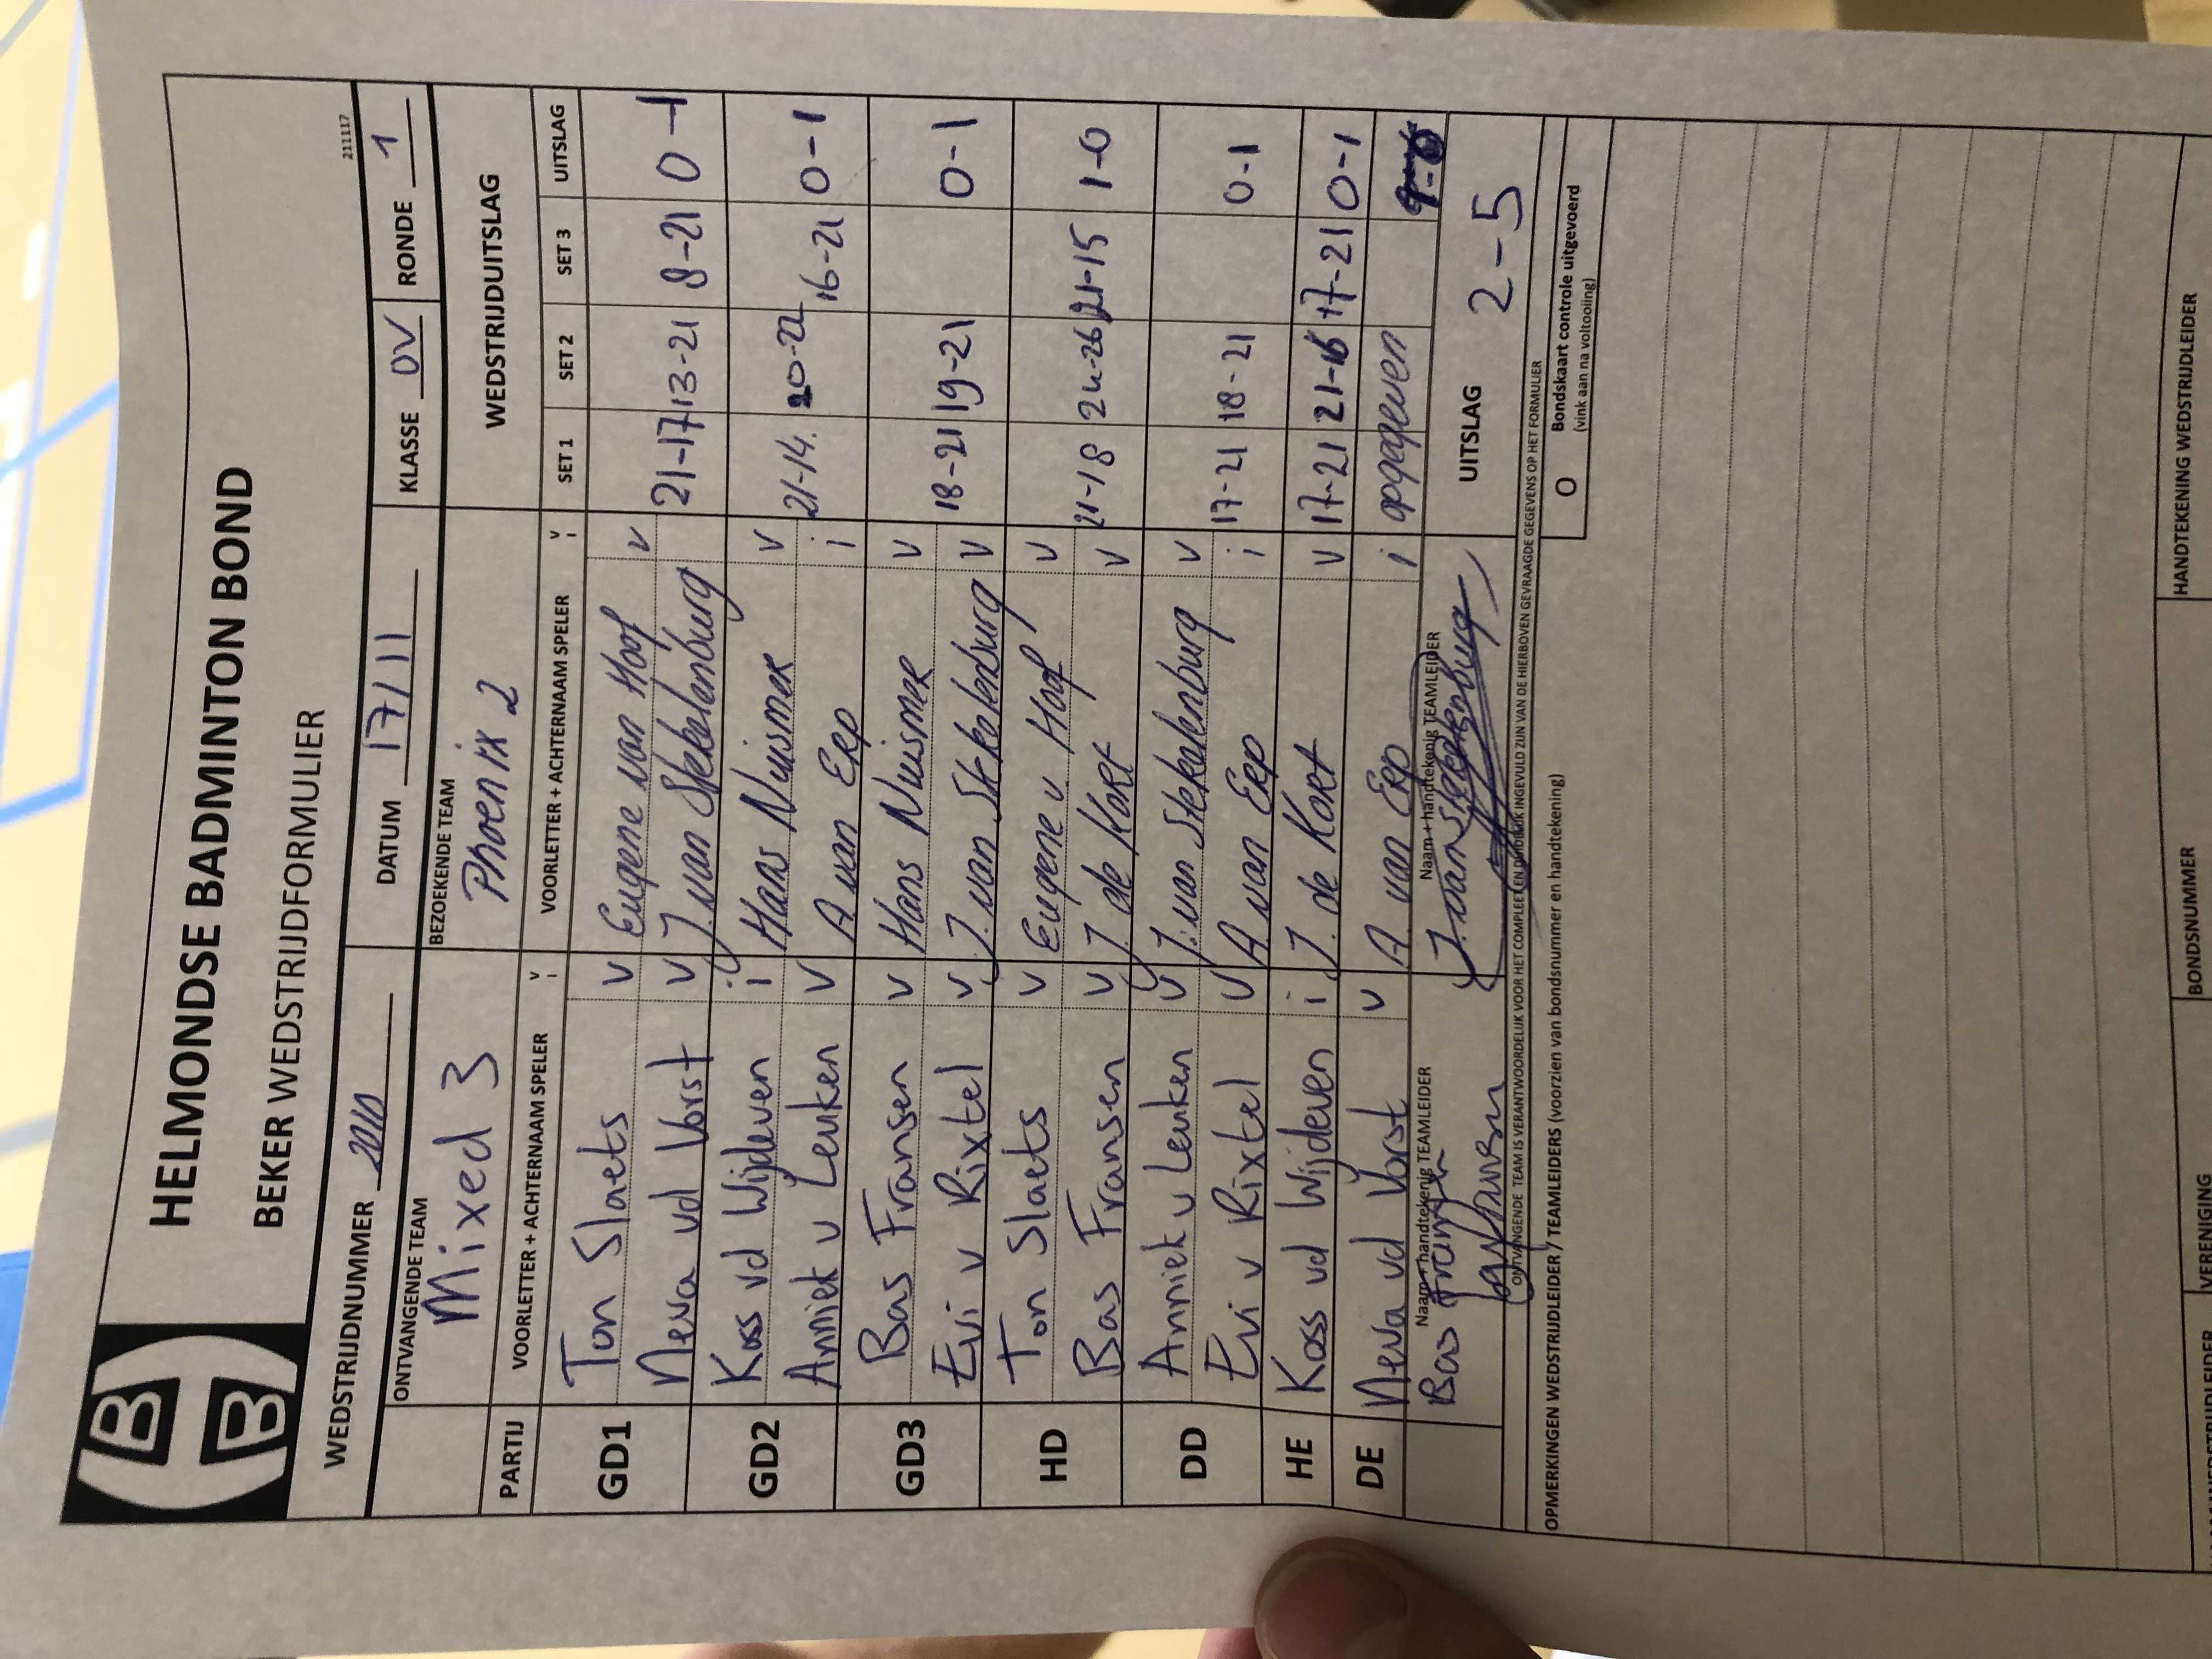 HELMONDSE BADMINTON BOND
BEKER WEDSTRIJDFORMULIER
211117
WEDSTRIJDNUMMER DATUM 17/11 KLASSE OV RONDE 1
ONTVANGENDE TEAM BEZOEKENDE TEAM WEDSTRIJDUITSLAG
Mixed 3 Phoenix 2
PARTIJ VOORLETTER + ACHTERNAAM SPELER V i VOORLETTER + ACHTERNAAM SPELER V i SET 1 SET 2 SET 3 UITSLAG
GD1 Ton Slaets V Eugene van Hoof V
Neva vd Vorst V J. van Stekelenburg 21-17 13-21 8-21 0-1
GD2 Koss vd Wijdeven i Hans Nuismer V
Anniek v Leuken V A van Erp i 21-14. 20-22 16-21 0-1
GD3 Bas Fransen V Hans Nuismer V
Evi v Rixtel V J. van Stekelenburg V 18-21 19-21 0-1
HD Ton Slaets V Eugene v. Hoof V
Bas Fransen V J. de Kort V 21-18 24-26 21-15 1-0
DD Anniek v Leuken V J. van Stekelenburg V
Evi v Rixtel V A van Erp i 17-21 18-21 0-1
HE Koss vd Wijdeven i J. de Kort V 17-21 21-16 17-21 0-1
DE Neva vd Vorst V A van Erp i opgegeven
Naam + handtekenig TEAMLEIDER Naam + handtekenig TEAMLEIDER
Bas Fransen J. van Stekelenburg UITSLAG 2-5
ONTVANGENDE TEAM IS VERANTWOORDELIJK VOOR HET COMPLEET EN DUIDELIJK INGEVULD ZIJN VAN DE HIERBOVEN GEVRAAGDE GEGEVENS OP HET FORMULIER
O Bondskaart controle uitgevoerd
(vink aan na voltooiing)
OPMERKINGEN WEDSTRIJDLEIDER / TEAMLEIDERS (voorzien van bondsnummer en handtekening)
VERENIGING BONDSNUMMER HANDTEKENING WEDSTRIJDLEIDER